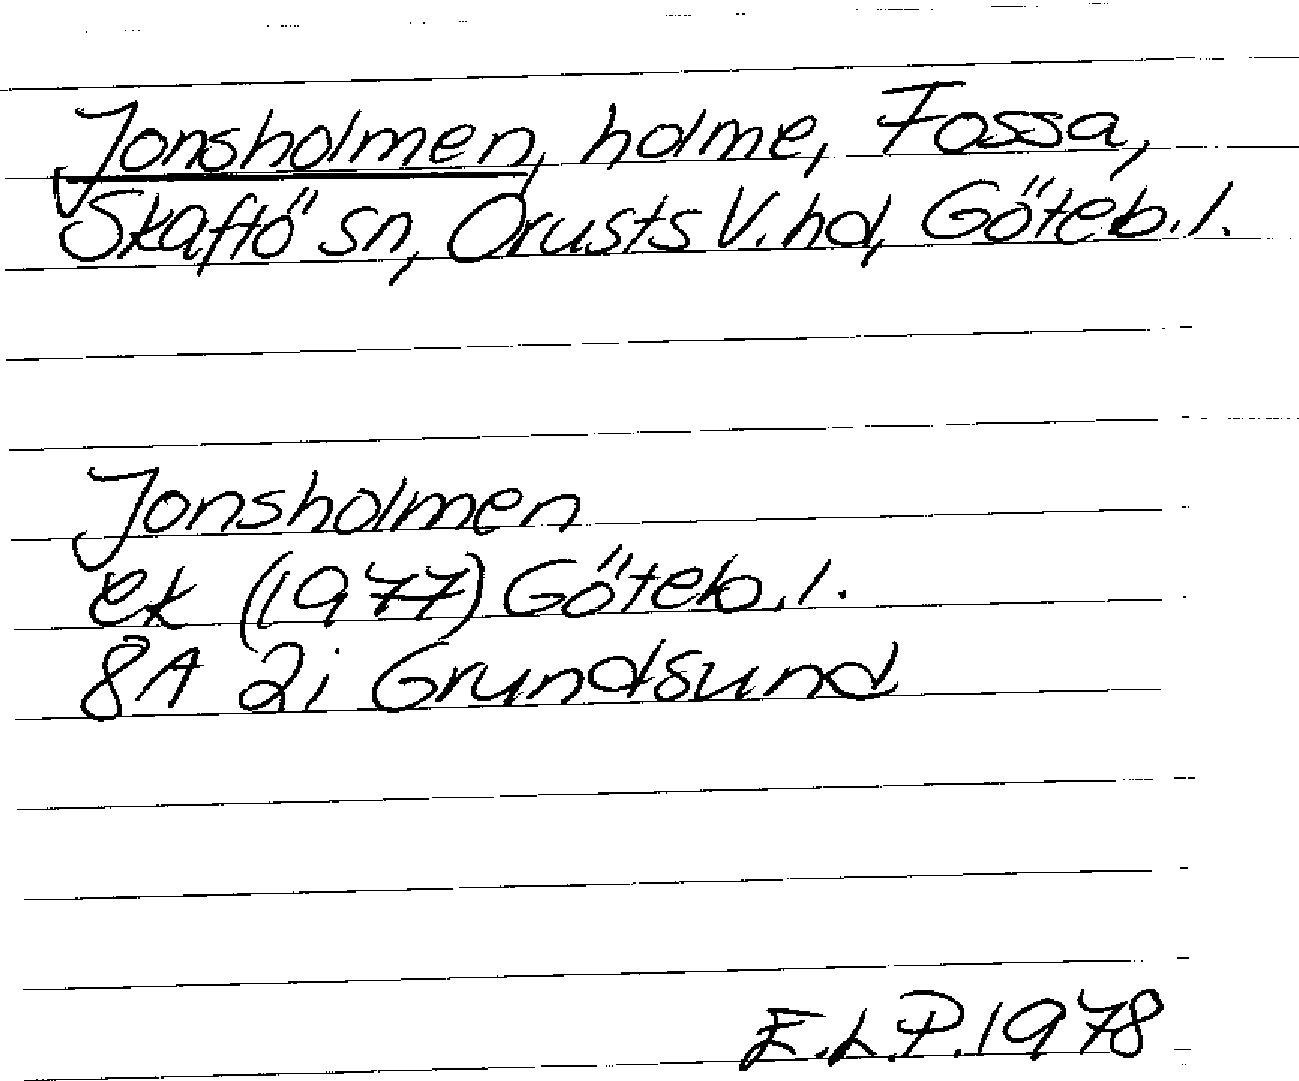 Jonsholmen, holme, Fossa,
Skaftö sn, Orusts V. hd, Göteb. l.
Jonsholmen
ek (1977) Göteb. l.
8A 2i Grundsund
E.L.P. 1978